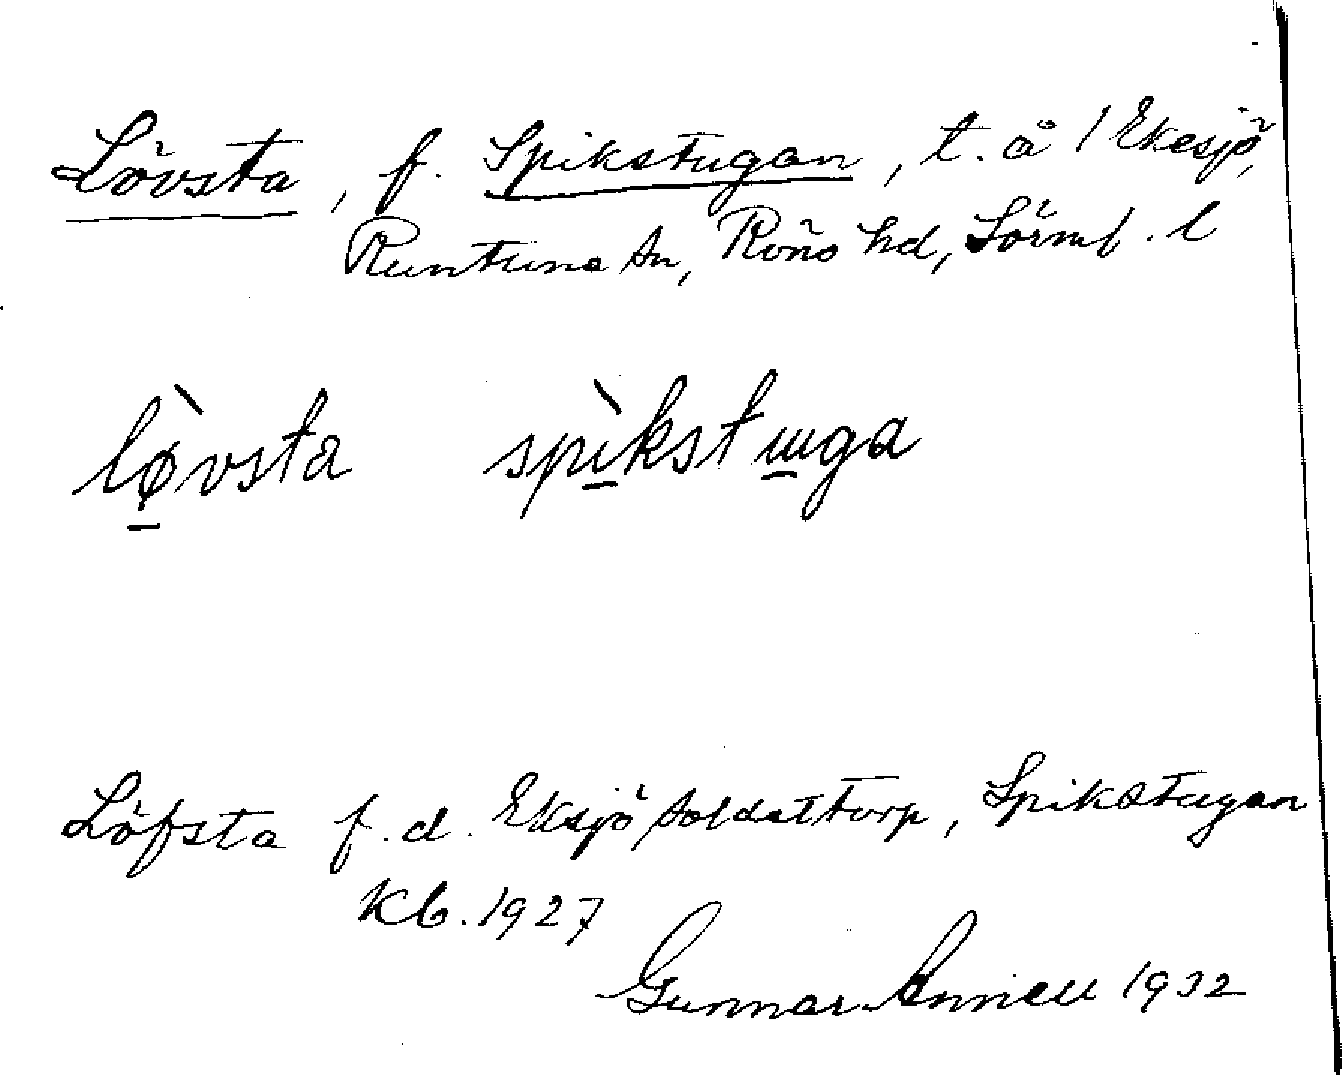 Lövsta, f. Spikstugan, t. å 1 Ekesjö,
Runtuna sn, Rönö hd, Sörml. l
lø̀vsta spìkstɯga
Löfsta f.d. Eksjö soldattorp, Spikstugan
Kb. 1927
Gunnar Annell 1932